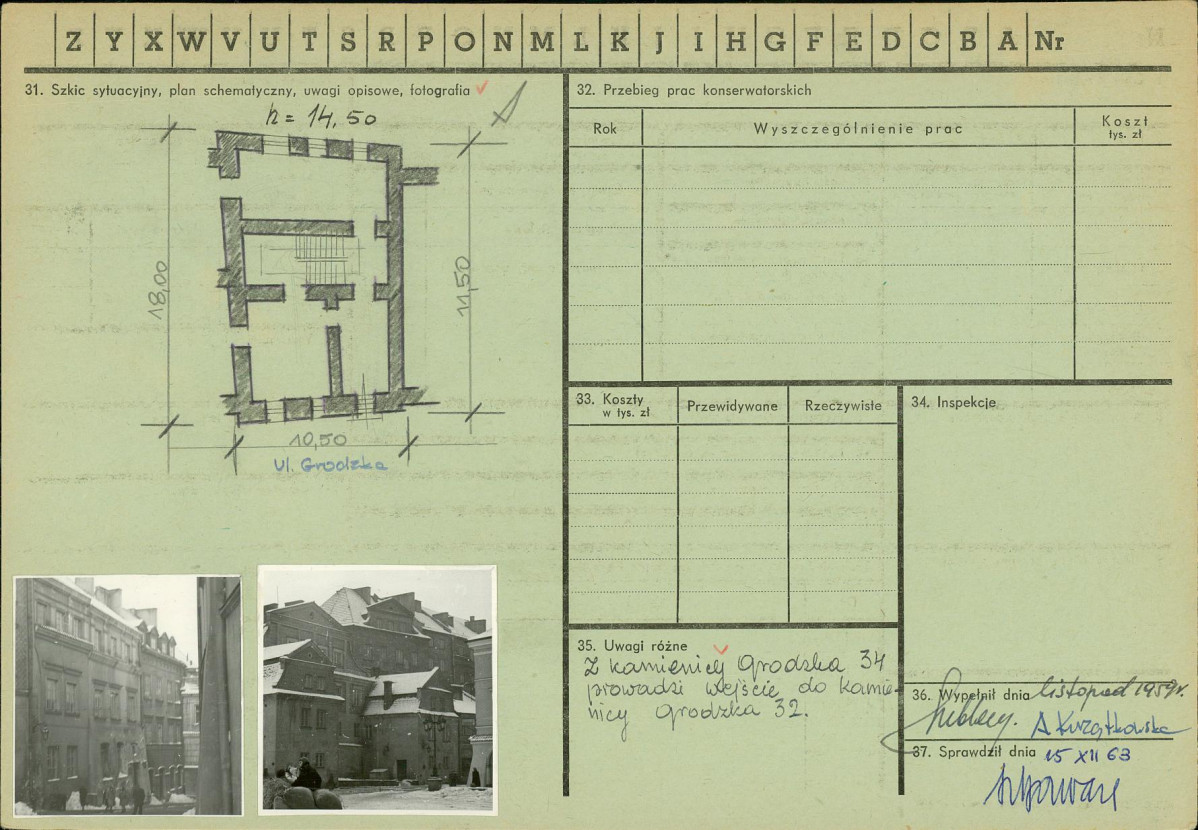 Z Y X W V U T S R P O N M L K J I H G F E D C B A Nr
31. Szkic sytuacyjny, plan schematyczny, uwagi opisowe, fotografia
h = 14,50
18,00
11,50
10,50
ul. Grodzka
32. Przebieg prac konserwatorskich
Rok
Wyszczególnienie prac
Koszt
tys. zł
33. Koszty
w tys. zł
Przewidywane
Rzeczywiste
34. Inspekcje
35. Uwagi różne
Z kamienicy Grodzka 34
prowadzi wejście do kamie-
nicy Grodzka 32.
36. Wypełnił dnia listopad 1959r.
A Kurzątkowska
37. Sprawdził dnia 15 XII 63